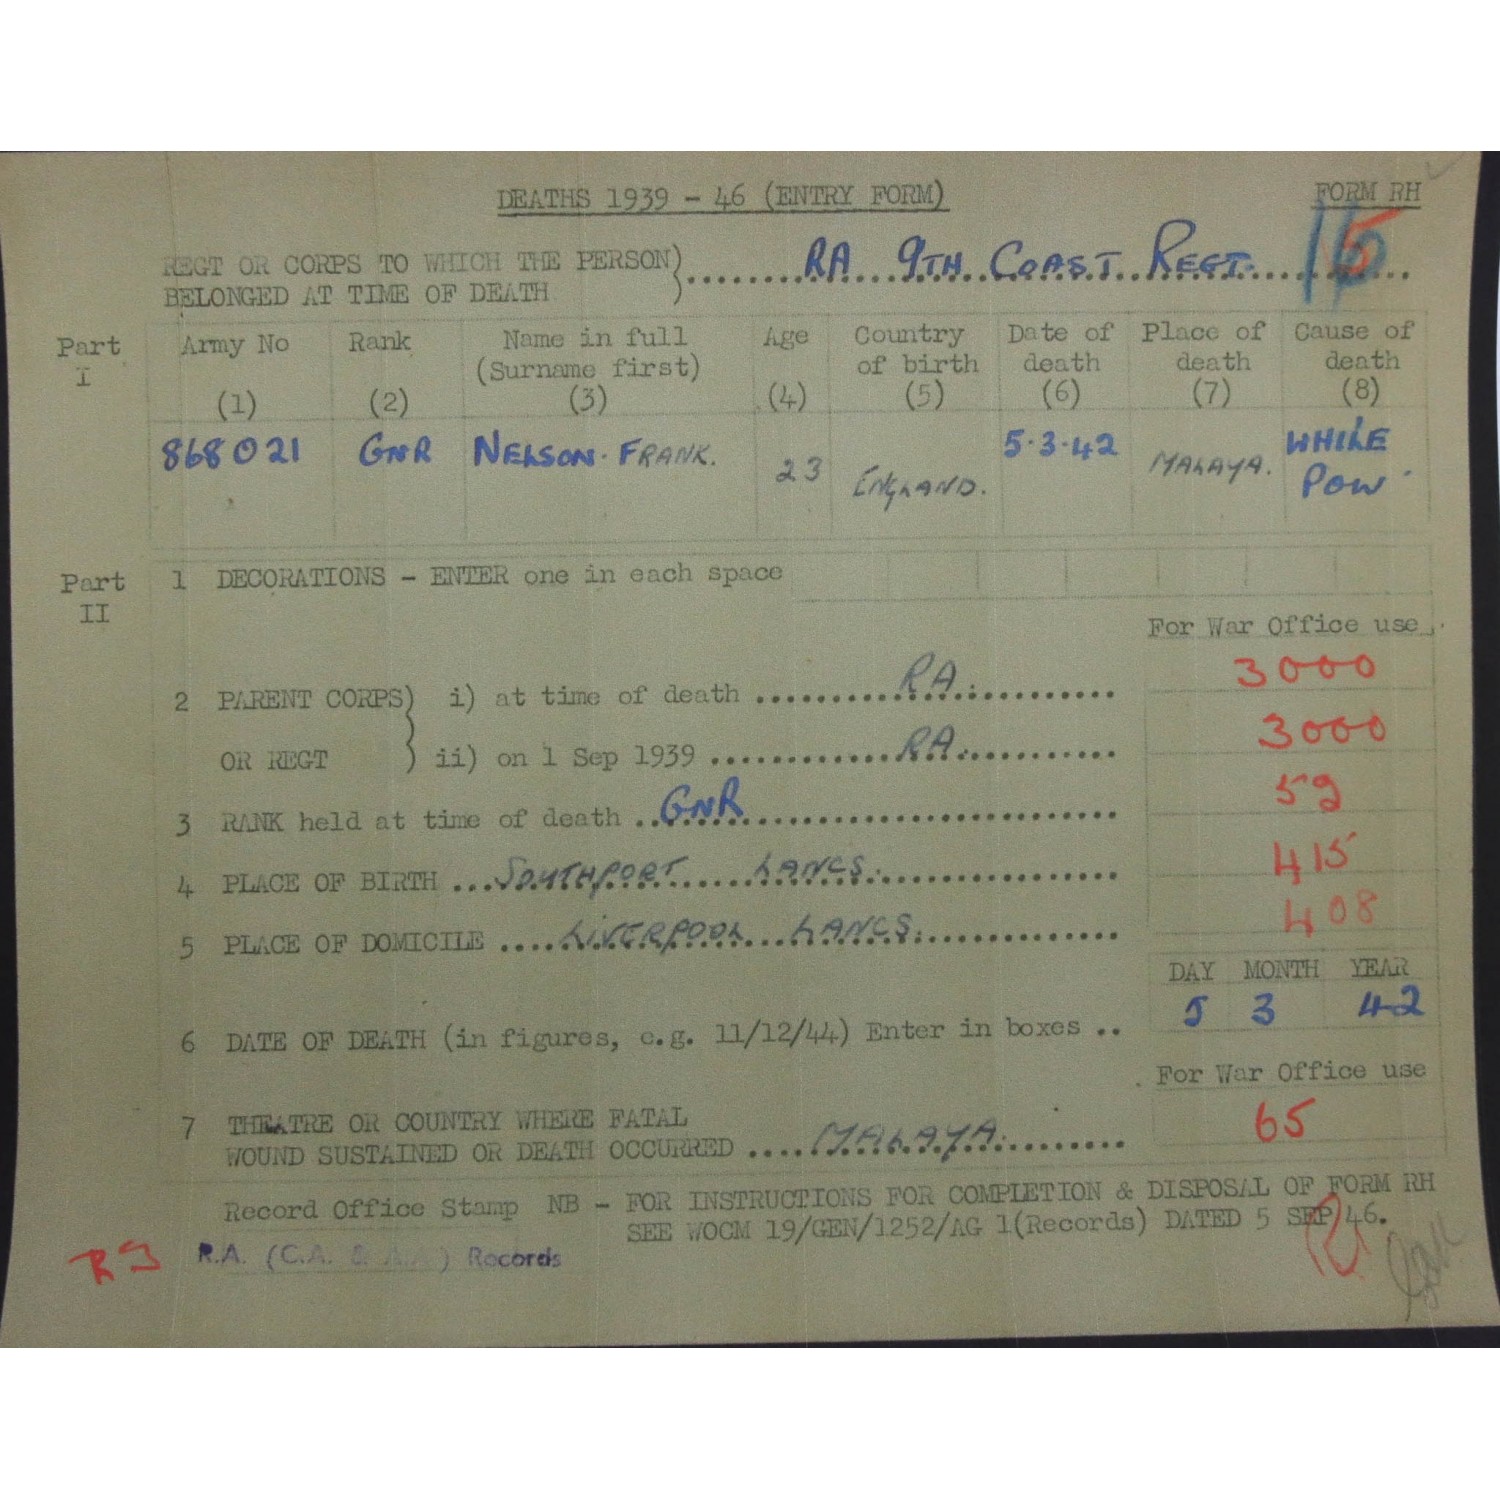 DEATHS 1939 - 46 (ENTRY FORM)
FORM RH
REGT OR CORPS TO WHICH THE PERSON)
BELONGED AT TIME OF DEATH ) RA 9TH COAST REGT.
Part I
Army No (1) Rank (2) Name in full (Surname first) (3) Age (4) Country of birth (5) Date of death (6) Place of death (7) Cause of death (8)
868021 GNR NELSON. FRANK. 23 ENGLAND. 5.3.42 MALAYA. WHILE POW.
Part II
1 DECORATIONS - ENTER one in each space
For War Office use
2 PARENT CORPS) i) at time of death ... RA. 3000
OR REGT ) ii) on 1 Sep 1939 ... RA. 3000
3 RANK held at time of death ... GNR 59
4 PLACE OF BIRTH ... SOUTHPORT LANCS. 415
5 PLACE OF DOMICILE .... LIVERPOOL LANCS. 408
DAY MONTH YEAR
6 DATE OF DEATH (in figures, e.g. 11/12/44) Enter in boxes .. 5 3 42
For War Office use
7 THEATRE OR COUNTRY WHERE FATAL
WOUND SUSTAINED OR DEATH OCCURRED .... MALAYA. 65
Record Office Stamp NB - FOR INSTRUCTIONS FOR COMPLETION & DISPOSAL OF FORM RH
SEE WOCM 19/GEN/1252/AG 1(Records) DATED 5 SEP 46.
R.A. (C.A. & A.A.) Records